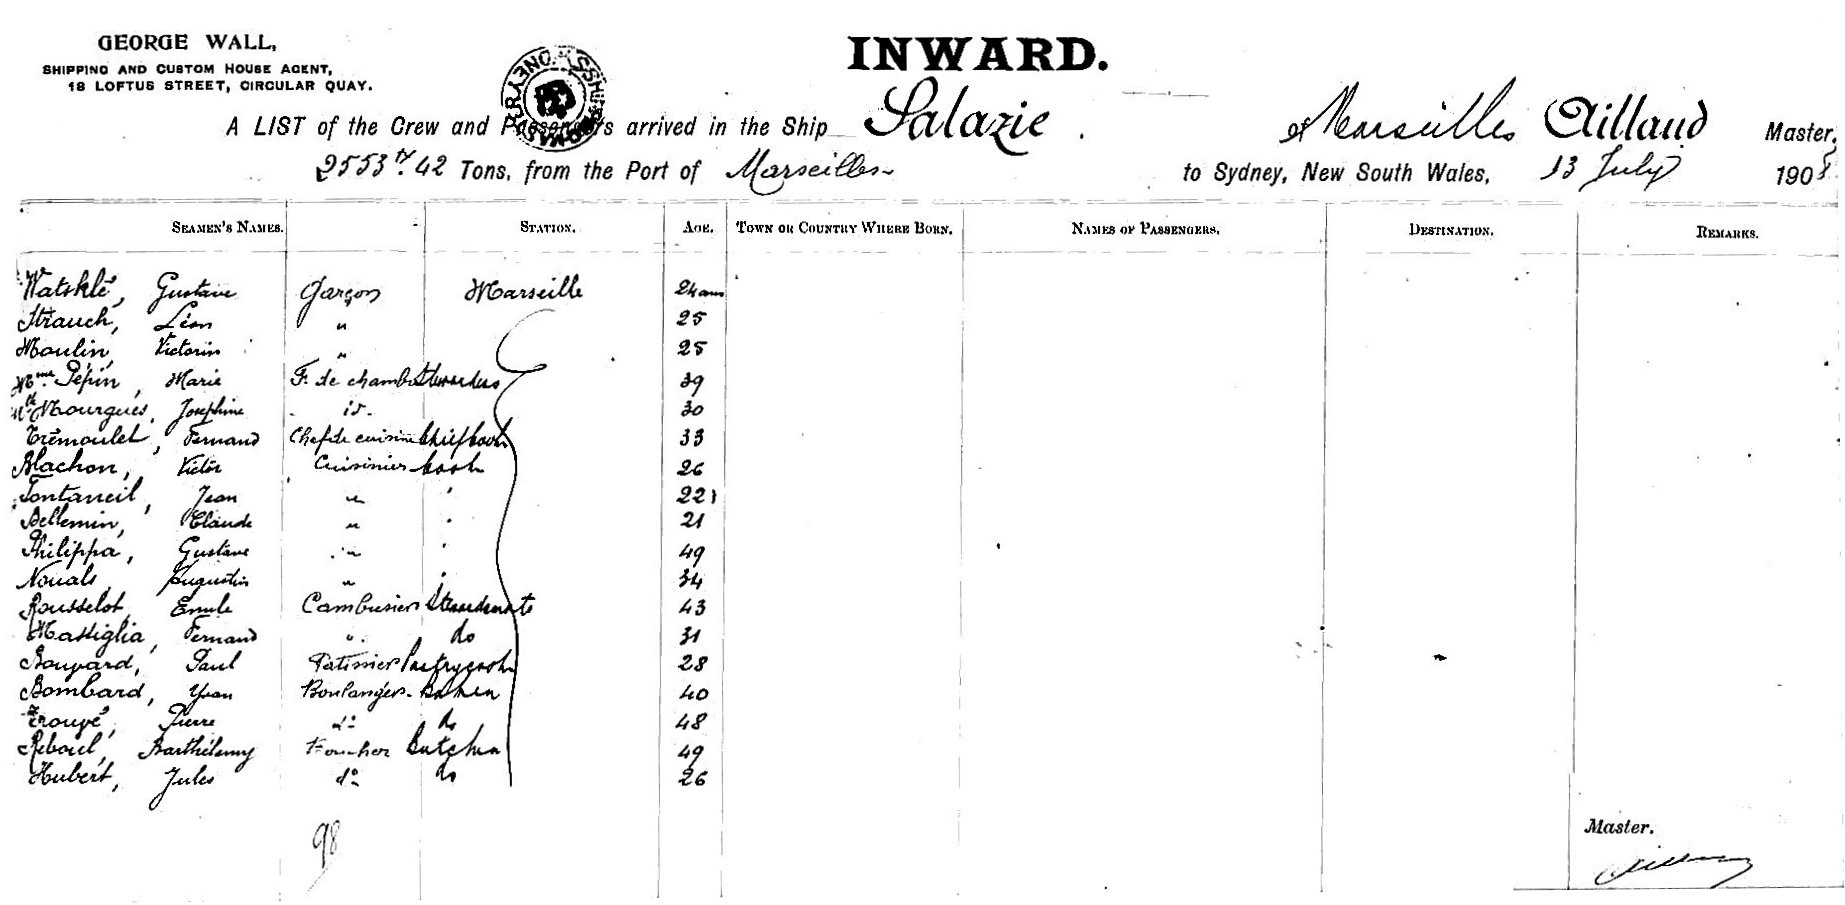 GEORGE WALL,
SHIPPING AND CUSTOM HOUSE AGENT,
18 LOFTUS STREET, CIRCULAR QUAY.
INWARD.
A LIST of the Crew and Passengers arrived in the Ship Salazie of Marseilles Aillaud Master,
2553 tx. 42 Tons, from the Port of Marseilles to Sydney, New South Wales, 13 July 190
SEAMEN'S NAMES. STATION. AGE. TOWN OR COUNTRY WHERE BORN. NAMES OF PASSENGERS. DESTINATION. REMARKS.
Watsklé, Gustave Garçon Marseille 24 ans
Strauch, Léon " 25
Moulin, Victorin " 25
Mme Pépin, Marie F. de chambre Stewardess 39
Mourgues, Joséphine id. 30
Trémoulet, Fernand Chef de cuisine Chief Cook 33
Blachon, Victor Cuisinier Cook 26
Fontanieil, Jean " 22
Bellemin, Claude " 21
Philippa, Gustave " 49
Nouals, Augustin " 34
Rousselot, Emile Cambusier Stewards mate 43
Mattiglia, Fernand " do 31
Bouvard, Paul Patissier Pastrycook 28
Bombard, Yvan Boulanger Baker 40
Trouyé, Pierre do do 48
Reboul, Barthélemy Butcher 49
Hubert, Jules do do 26
98
Master.
Aillaud